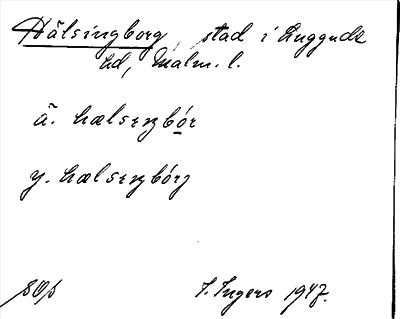 Hälsingborg, stad i Luggude
hd, Malm. l.
ä. hælsεŋbór
y. hælsεŋbórj
I. Ingers 1947.